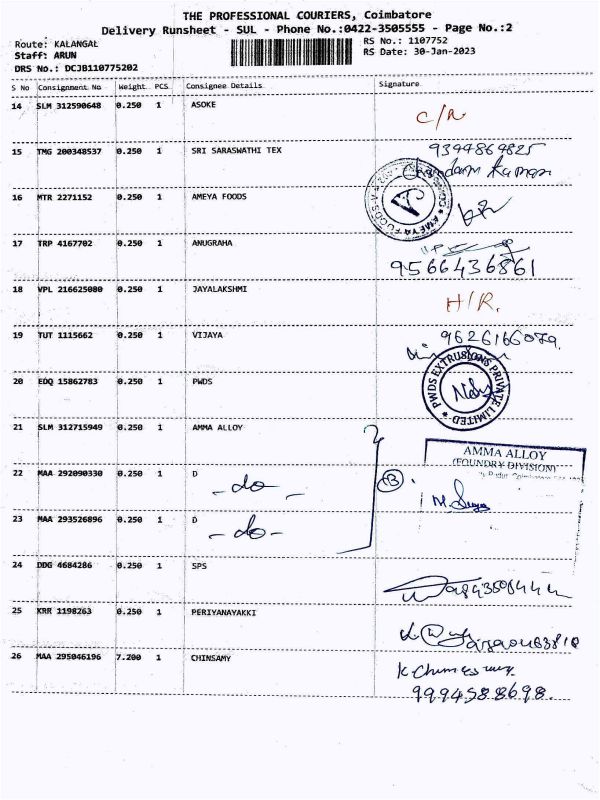 THE PROFESSIONAL COURIERS, Coimbatore
Delivery Runsheet - SUL - Phone No.:0422-3505555 - Page No.:2
Route: KALANGAL
RS No.: 1107752
Staff: ARUN
RS Date: 30-Jan-2023
DRS No.: DCJB110775202
S No Consignment No Weight PCS Consignee Details Signature
14 SLM 312590648 0.250 1 ASOKE C/R
15 TMG 200348537 0.250 1 SRI SARASWATHI TEX 9344869825
16 MTR 2271152 0.250 1 AMEYA FOODS
AMEYA FOODS
17 TRP 4167702 0.250 1 ANUGRAHA
9566436861
18 VPL 216625080 0.250 1 JAYALAKSHMI H/R.
19 TUT 1115662 0.250 1 VIJAYA 9626166079.
20 EDQ 15862783 0.250 1 PWDS
PWDS EXTRUSIONS PRIVATE LIMITED
21 SLM 312715949 0.250 1 AMMA ALLOY
AMMA ALLOY
(FOUNDRY DIVISION)
22 MAA 292090330 0.250 1 D
- do -
(3)
23 MAA 293526896 0.250 1 D
- do -
24 DDG 4684286 0.250 1 SPS
25 KRR 1198263 0.250 1 PERIYANAYAKKI
26 MAA 295046196 7.200 1 CHINSAMY
9994588698.